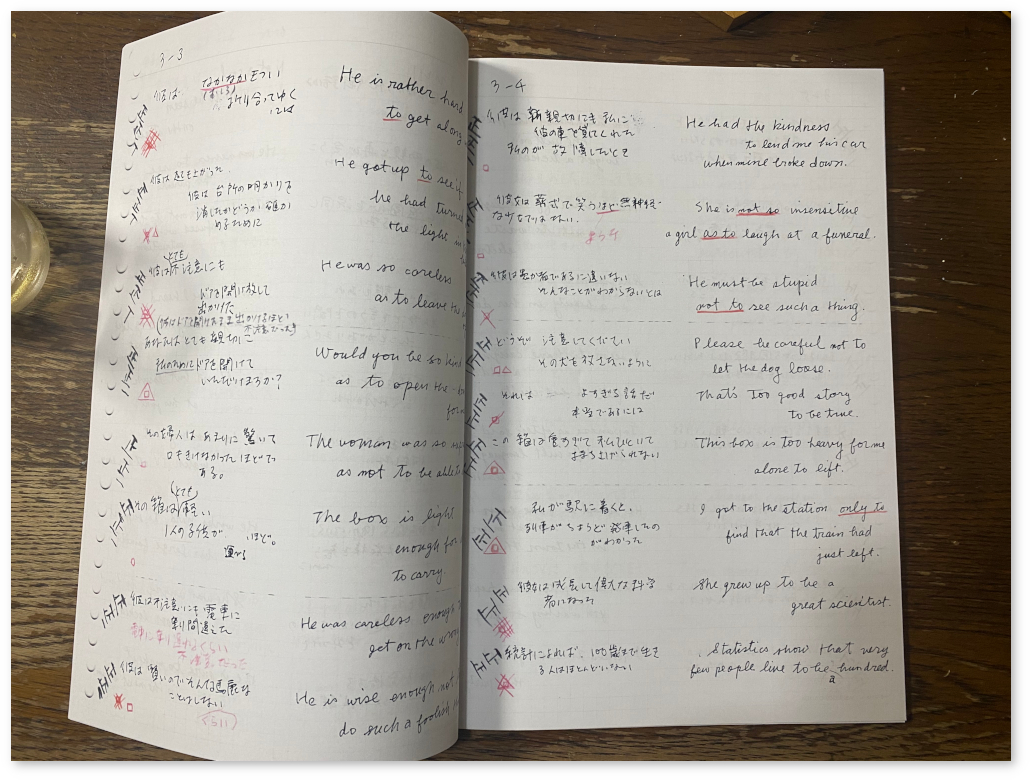 3-3
彼は なかなか
He is rather hard
to get along
彼は起き上がった。
彼は台所の明かりを
消したかどうか確か
めるために
He got up to see if
he had turned
the light
とても
彼は不注意にも
ドアを開け放して
出かけた
He was so careless
as to leave
あなたはとても親切に
私のためにドアを開けて
いただけますか?
Would you be so kind
as to open the
for
その婦人は あまりに 驚いて
口もきけなかったほどで
ある。
The woman was so
as not to be able to
とても
その箱は軽い
1人の子供が ほど。
運べる
The box is light
enough for
to carry.
彼は不注意にも電車に
乗り間違えた
He was careless enough
get on the wrong
彼は賢いのでそんな馬鹿な
ことはしない
ぐらい
He is wise enough not
do such a foolish
3-4
彼は 親切にも 私に
彼の車を貸してくれた
私のが故障したとき
He had the kindness
to lend me his car
when mine broke down.
彼女は葬式で笑うほど無神経
な少女ではない。
ような
She is not so insensitive
a girl as to laugh at a funeral.
彼は愚か者であるに違いない
そんなことがわからないとは
He must be stupid
not to see such a thing.
どうぞ 注意してください
その犬を放さないように
Please be careful not to
let the dog loose.
それは よすぎる話だ
本当であるには
That's Too good story
to be true.
この箱は重すぎて私ひとりで
は持ち上げられない
This box is too heavy for me
alone to lift.
私が駅に着くと、
列車がちょうど発車したの
がわかった
I got to the station only to
find that the train had
just left.
彼女は成長して偉大な科学
者になった
She grew up to be a
great scientist.
統計によれば、100歳まで生き
る人はほとんどいない
Statistics show that very
few people live to be hundred.
a